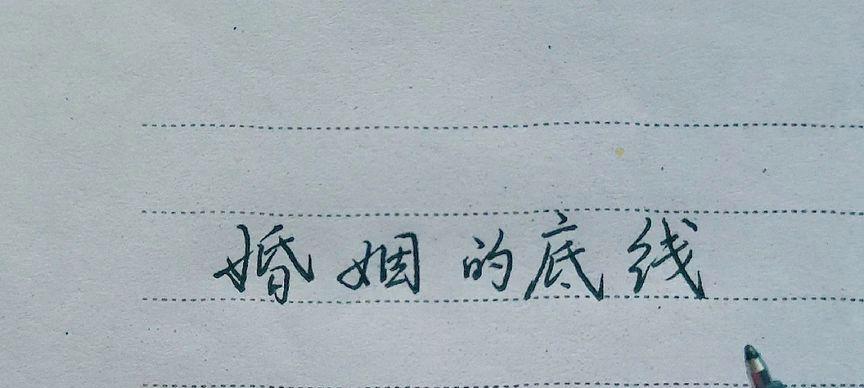 婚姻的底线